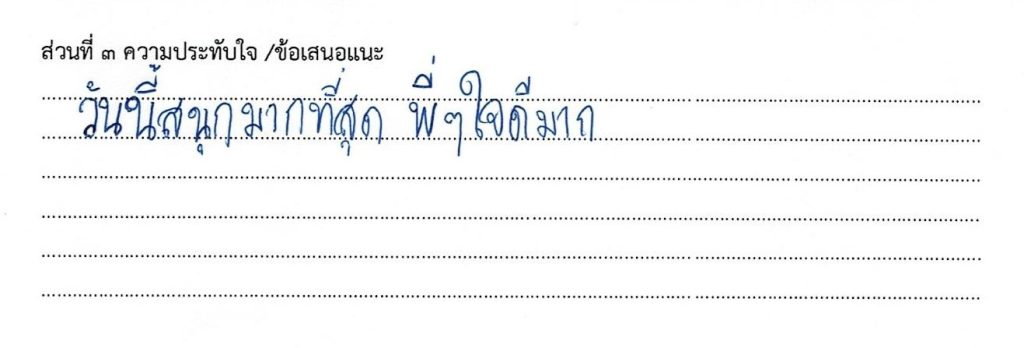 ส่วนที่ ๓ ความประทับใจ /ข้อเสนอแนะ
วันนี้สนุกมากที่สุด พี่ๆใจดีมาก